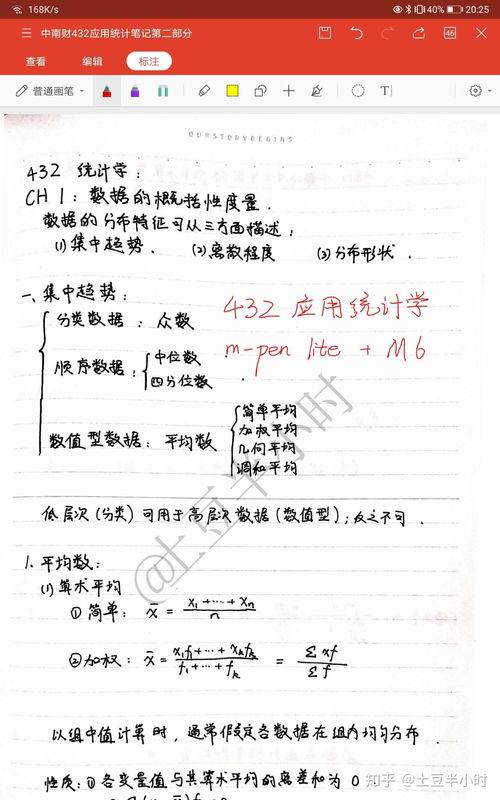 168K/s 40% 20:25
中南财432应用统计笔记第二部分
46
查看 编辑 标注
普通画笔 T
OURSTORYBEGINS
432 统计学:
CH 1: 数据的概括性度量.
数据的分布特征可从三方面描述:
(1) 集中趋势. (2) 离散程度 (3) 分布形状.
一、集中趋势:
分类数据: 众数
432 应用统计学
顺序数据: 中位数
四分位数
m-pen lite + M6
数值型数据: 平均数
简单平均
加权平均
几何平均
调和平均
低层次(分类)可用于高层次数据(数值型);反之不可.
1. 平均数:
(1) 算术平均
① 简单: x̄ = (x₁+⋯+xₙ)/n
② 加权: x̄ = (x₁f₁+⋯+xₖfₖ)/(f₁+⋯+fₖ) = Σxf/Σf
以组中值计算时, 通常假定各数据在组内均匀分布.
性质: ① 各变量值与其算术平均的离差和为0.
@土豆半小时
知乎 @土豆半小时